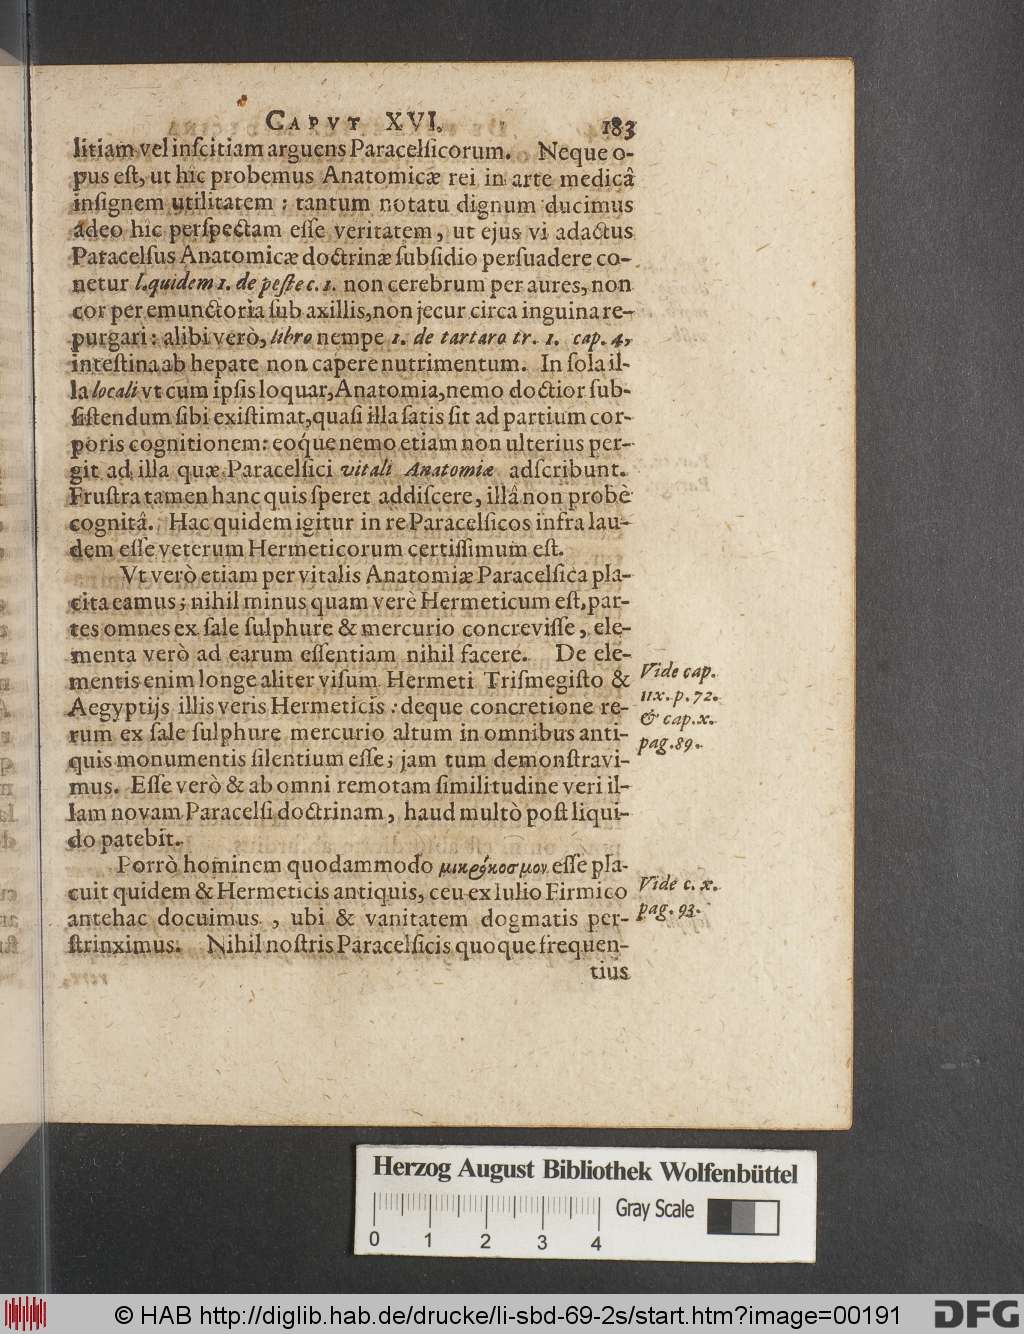 CAPVT XVI. 183
litiam vel inſcitiam arguens Paracelſicorum. Neque o-
pus eſt, ut hic probemus Anatomicæ rei in arte medicâ
inſignem utilitatem : tantum notatu dignum ducimus
adeo hic perſpectam eſſe veritatem, ut ejus vi adactus
Paracelſus Anatomicæ doctrinæ ſubſidio perſuadere co-
netur l. quidem 1. de peſte c. 1. non cerebrum per aures, non
cor per emunctoria ſub axillis, non jecur circa inguina re-
purgari : alibi verò, libro nempe 1. de tartaro tr. 1. cap. 4,
inteſtina ab hepate non capere nutrimentum. In ſola il-
la locali vt cum ipſis loquar, Anatomia, nemo doctior ſub-
ſiſtendum ſibi exiſtimat, quaſi illa ſatis ſit ad partium cor-
poris cognitionem: eoque nemo etiam non ulterius per-
git ad illa quæ Paracelſici vitali Anatomiæ adſcribunt.
Fruſtra tamen hanc quis ſperet addiſcere, illâ non probè
cognitâ. Hac quidem igitur in re Paracelſicos infra lau-
dem eſſe veterum Hermeticorum certiſſimum eſt.
Vt verò etiam per vitalis Anatomiæ Paracelſica pla-
cita eamus ; nihil minus quam verè Hermeticum eſt, par-
tes omnes ex ſale ſulphure & mercurio concreviſſe, ele-
menta verò ad earum eſſentiam nihil facere. De ele-
mentis enim longe aliter viſum Hermeti Triſmegiſto &
Aegyptijs illis veris Hermeticis : deque concretione re-
rum ex ſale ſulphure mercurio altum in omnibus anti-
quis monumentis ſilentium eſſe ; jam tum demonſtravi-
mus. Eſſe verò & ab omni remotam ſimilitudine veri il-
lam novam Paracelſi doctrinam, haud multò poſt liqui-
do patebit.
Vide cap.
iix. p. 72.
& cap. x.
pag. 89.
Porrò hominem quodammodo μικρόκοσμον eſſe pla-
cuit quidem & Hermeticis antiquis, ceu ex Iulio Firmico
antehac docuimus , ubi & vanitatem dogmatis per-
ſtrinximus. Nihil noſtris Paracelſicis quoque frequen-
tius
Vide c. x.
pag. 93.
Herzog August Bibliothek Wolfenbüttel
Gray Scale
0 1 2 3 4
© HAB http://diglib.hab.de/drucke/li-sbd-69-2s/start.htm?image=00191
DFG